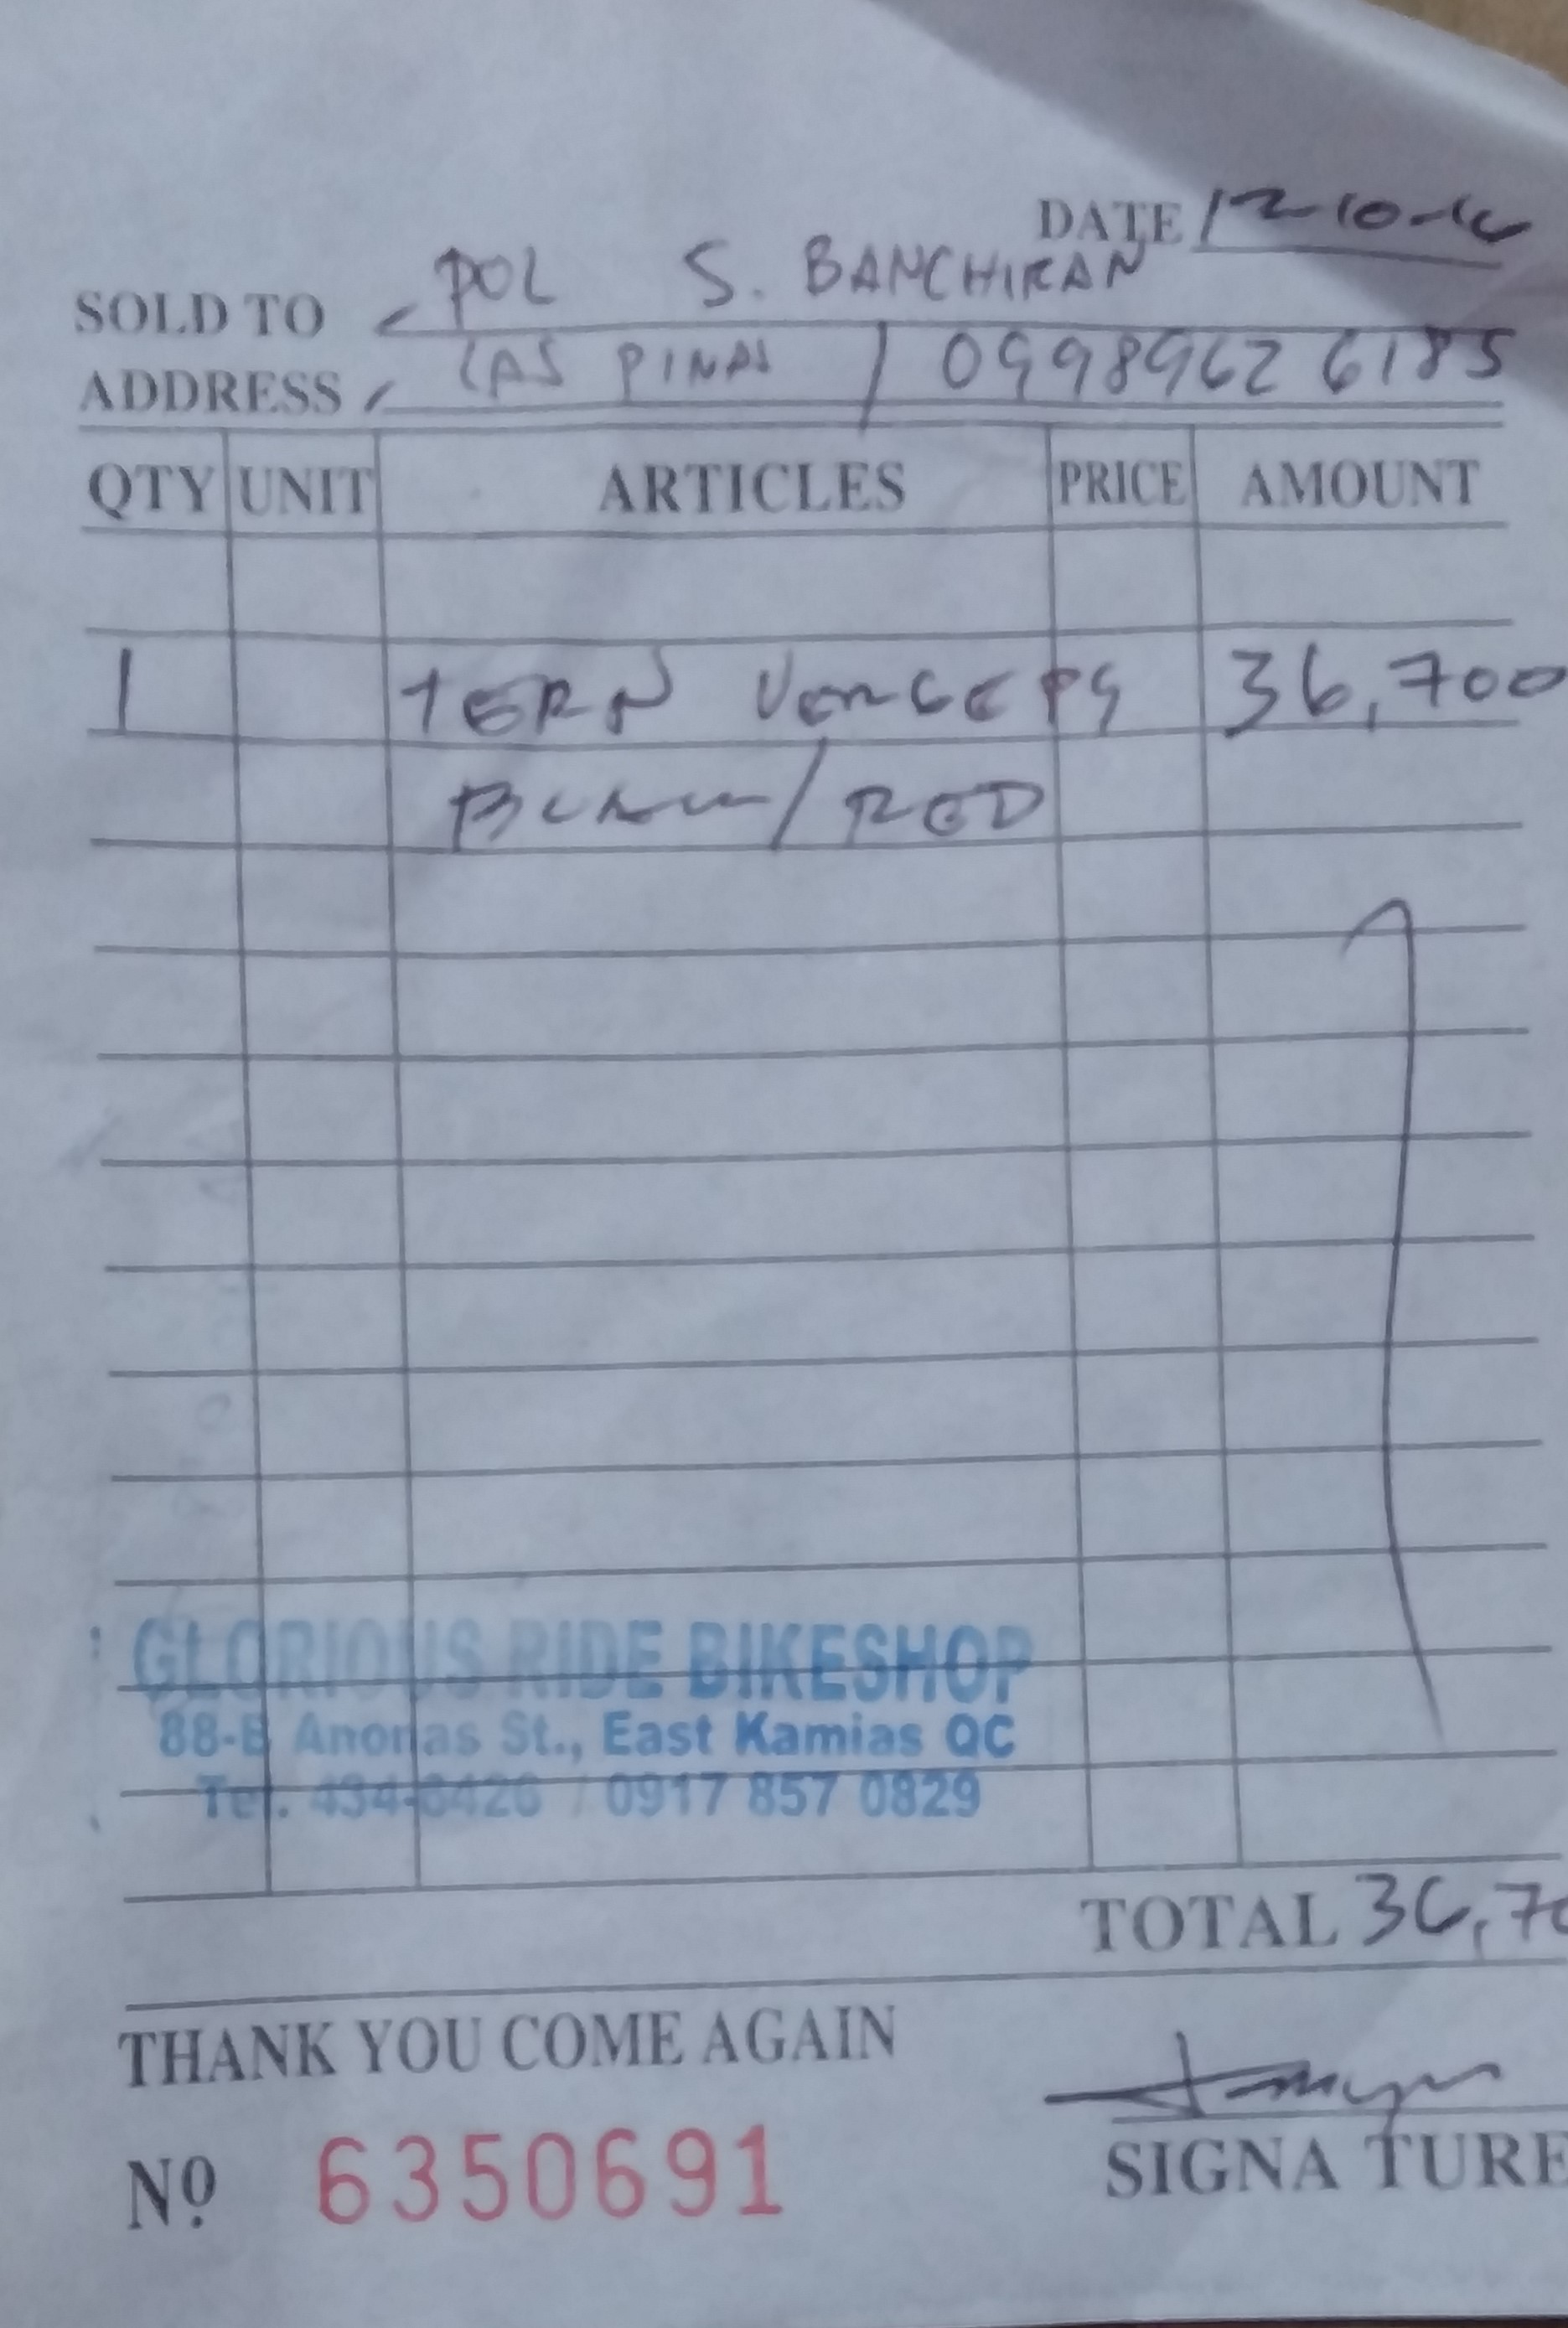 DATE 12-10-16
SOLD TO POL S. BANCHIRAN
ADDRESS LAS PINAS / 09989626185
QTY UNIT ARTICLES PRICE AMOUNT
1 TERN VERGE P9 36,700
BLACK/RED
GLORIOUS RIDE BIKESHOP
88-B Anonas St., East Kamias QC
Tel. 434-6426 / 0917 857 0829
TOTAL 36,70
THANK YOU COME AGAIN
SIGNATURE
Nº 6350691